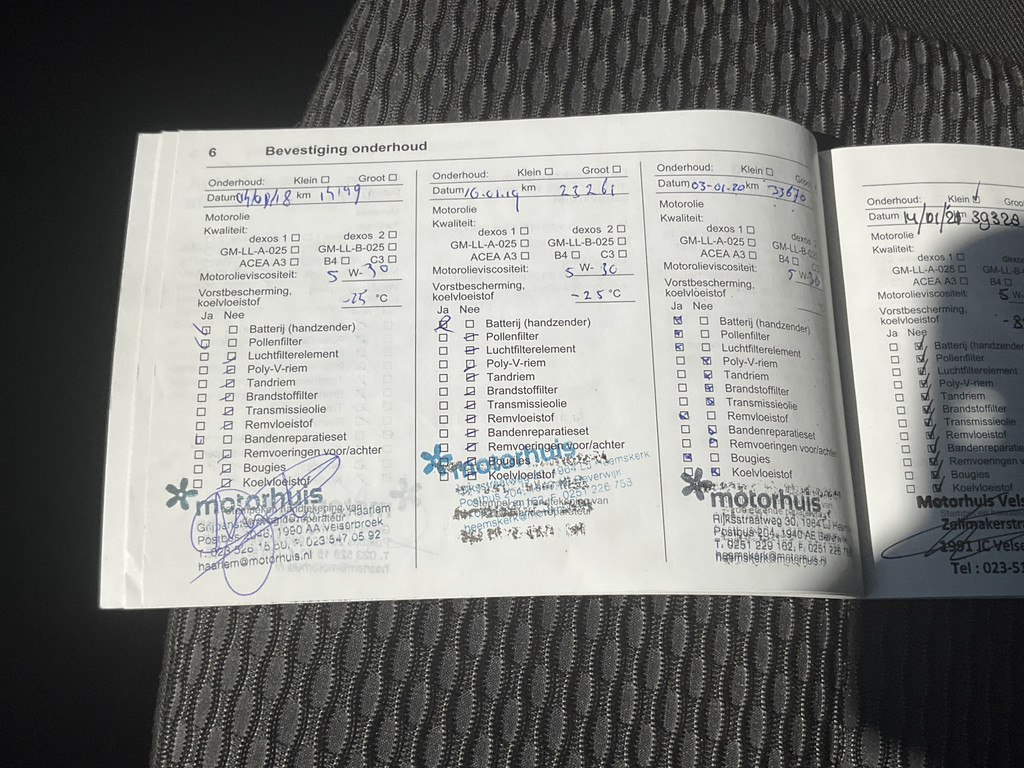 6 Bevestiging onderhoud
Onderhoud: Klein Groot
Datum 04/01/18 km
Motorolie
Kwaliteit:
dexos 1 dexos 2
GM-LL-A-025 GM-LL-B-025
ACEA A3 B4 C3
Motorolieviscositeit: 5 W-30
Vorstbescherming,
koelvloeistof -25 °C
Ja Nee
Batterij (handzender)
Pollenfilter
Luchtfilterelement
Poly-V-riem
Tandriem
Brandstoffilter
Transmissieolie
Remvloeistof
Bandenreparatieset
Remvoeringen voor/achter
Bougies
Koelvloeistof
motorhuis
haarlem@motorhuis.nl
Onderhoud: Klein Groot
Datum 16-01-19 km 23261
Motorolie
Kwaliteit:
dexos 1 dexos 2
GM-LL-A-025 GM-LL-B-025
ACEA A3 B4 C3
Motorolieviscositeit: 5 W-30
Vorstbescherming,
koelvloeistof -25 °C
Ja Nee
Batterij (handzender)
Pollenfilter
Luchtfilterelement
Poly-V-riem
Tandriem
Brandstoffilter
Transmissieolie
Remvloeistof
Bandenreparatieset
Remvoeringen voor/achter
Bougies
Koelvloeistof
motorhuis
Onderhoud: Klein Groot
Datum 03-01-20 km 33670
Motorolie
Kwaliteit:
dexos 1 dexos 2
GM-LL-A-025 GM-LL-B-025
ACEA A3 B4 C3
Motorolieviscositeit: 5 W-30
Vorstbescherming,
koelvloeistof °C
Ja Nee
Batterij (handzender)
Pollenfilter
Luchtfilterelement
Poly-V-riem
Tandriem
Brandstoffilter
Transmissieolie
Remvloeistof
Bandenreparatieset
Remvoeringen voor/achter
Bougies
Koelvloeistof
motorhuis
Rijksstraatweg 30, 1964 L
Postbus 204, 1940 AE Beverwijk
T. 0251 229 162, F. 0251 226
heemskerk@motorhuis.nl
Onderhoud: Klein Groo
Datum 14/01/21 km 39328
Motorolie
Kwaliteit:
dexos 1
GM-LL-A-025 GM-LL-B
ACEA A3
Motorolieviscositeit: 5 W-
Vorstbescherming,
koelvloeistof -8
Ja Nee
Batterij (handzender
Pollenfilter
Luchtfilterelement
Poly-V-riem
Tandriem
Brandstoffilter
Transmissieolie
Remvloeistof
Bandenreparatieset
Remvoeringen v
Bougies
Koelvloeistof
Motorhuis Vels
Zeilmakerstr
1991 JC Velse
Tel : 023-51